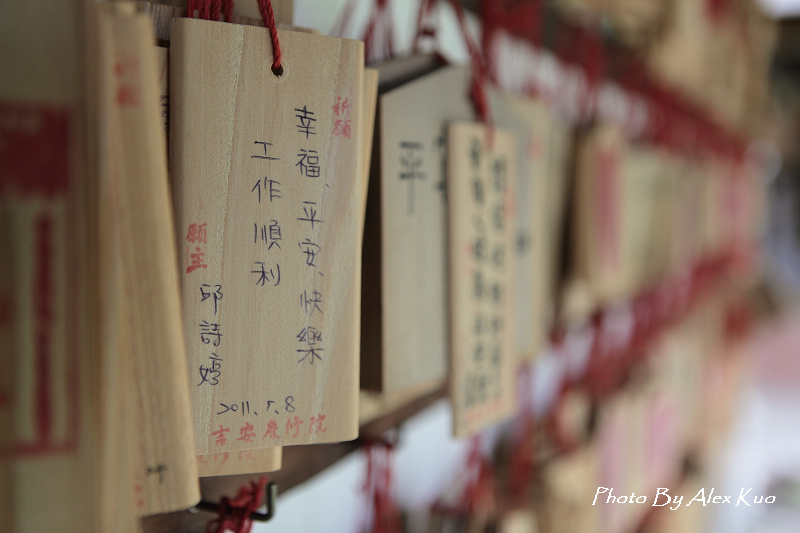 祈願
幸福、平安、快樂
工作順利
願主
邱詩婷
2011.5.8
吉安慶修院
平
Photo By Alex Kuo